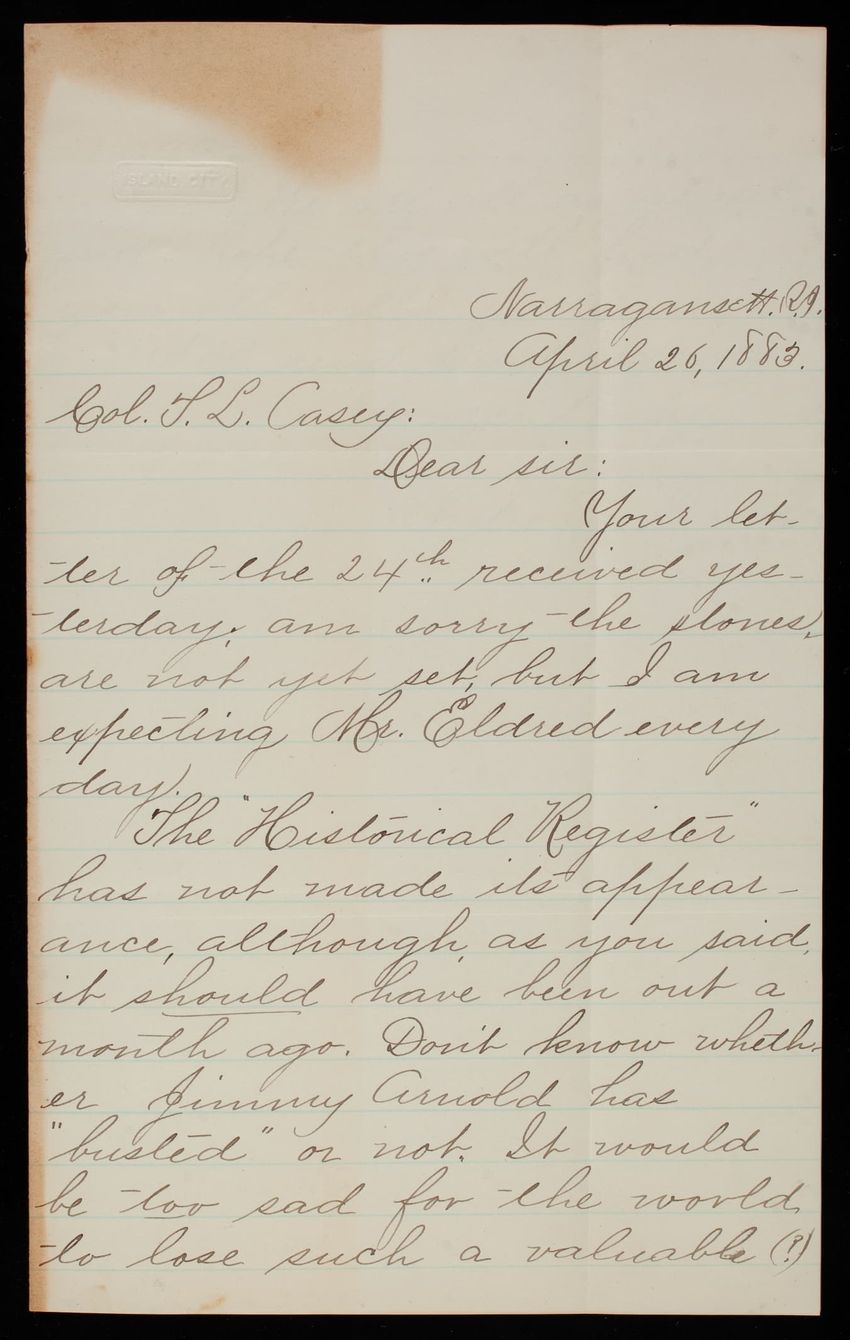 ISLAND CITY
Narragansett. R.I.
April 26, 1883.
Col. T. L. Casey:
Dear sir:
Your let-
ter of the 24th received yes-
terday. am sorry the stones,
are not yet set, but I am
expecting Mr. Eldred every
day.
The "Historical Register"
has not made its appear-
ance, although as you said,
it should have been out a
month ago. Don't know wheth-
er Jimmy Arnold has
"busted" or not. It would
be too sad for the world
to lose such a valuable (?)